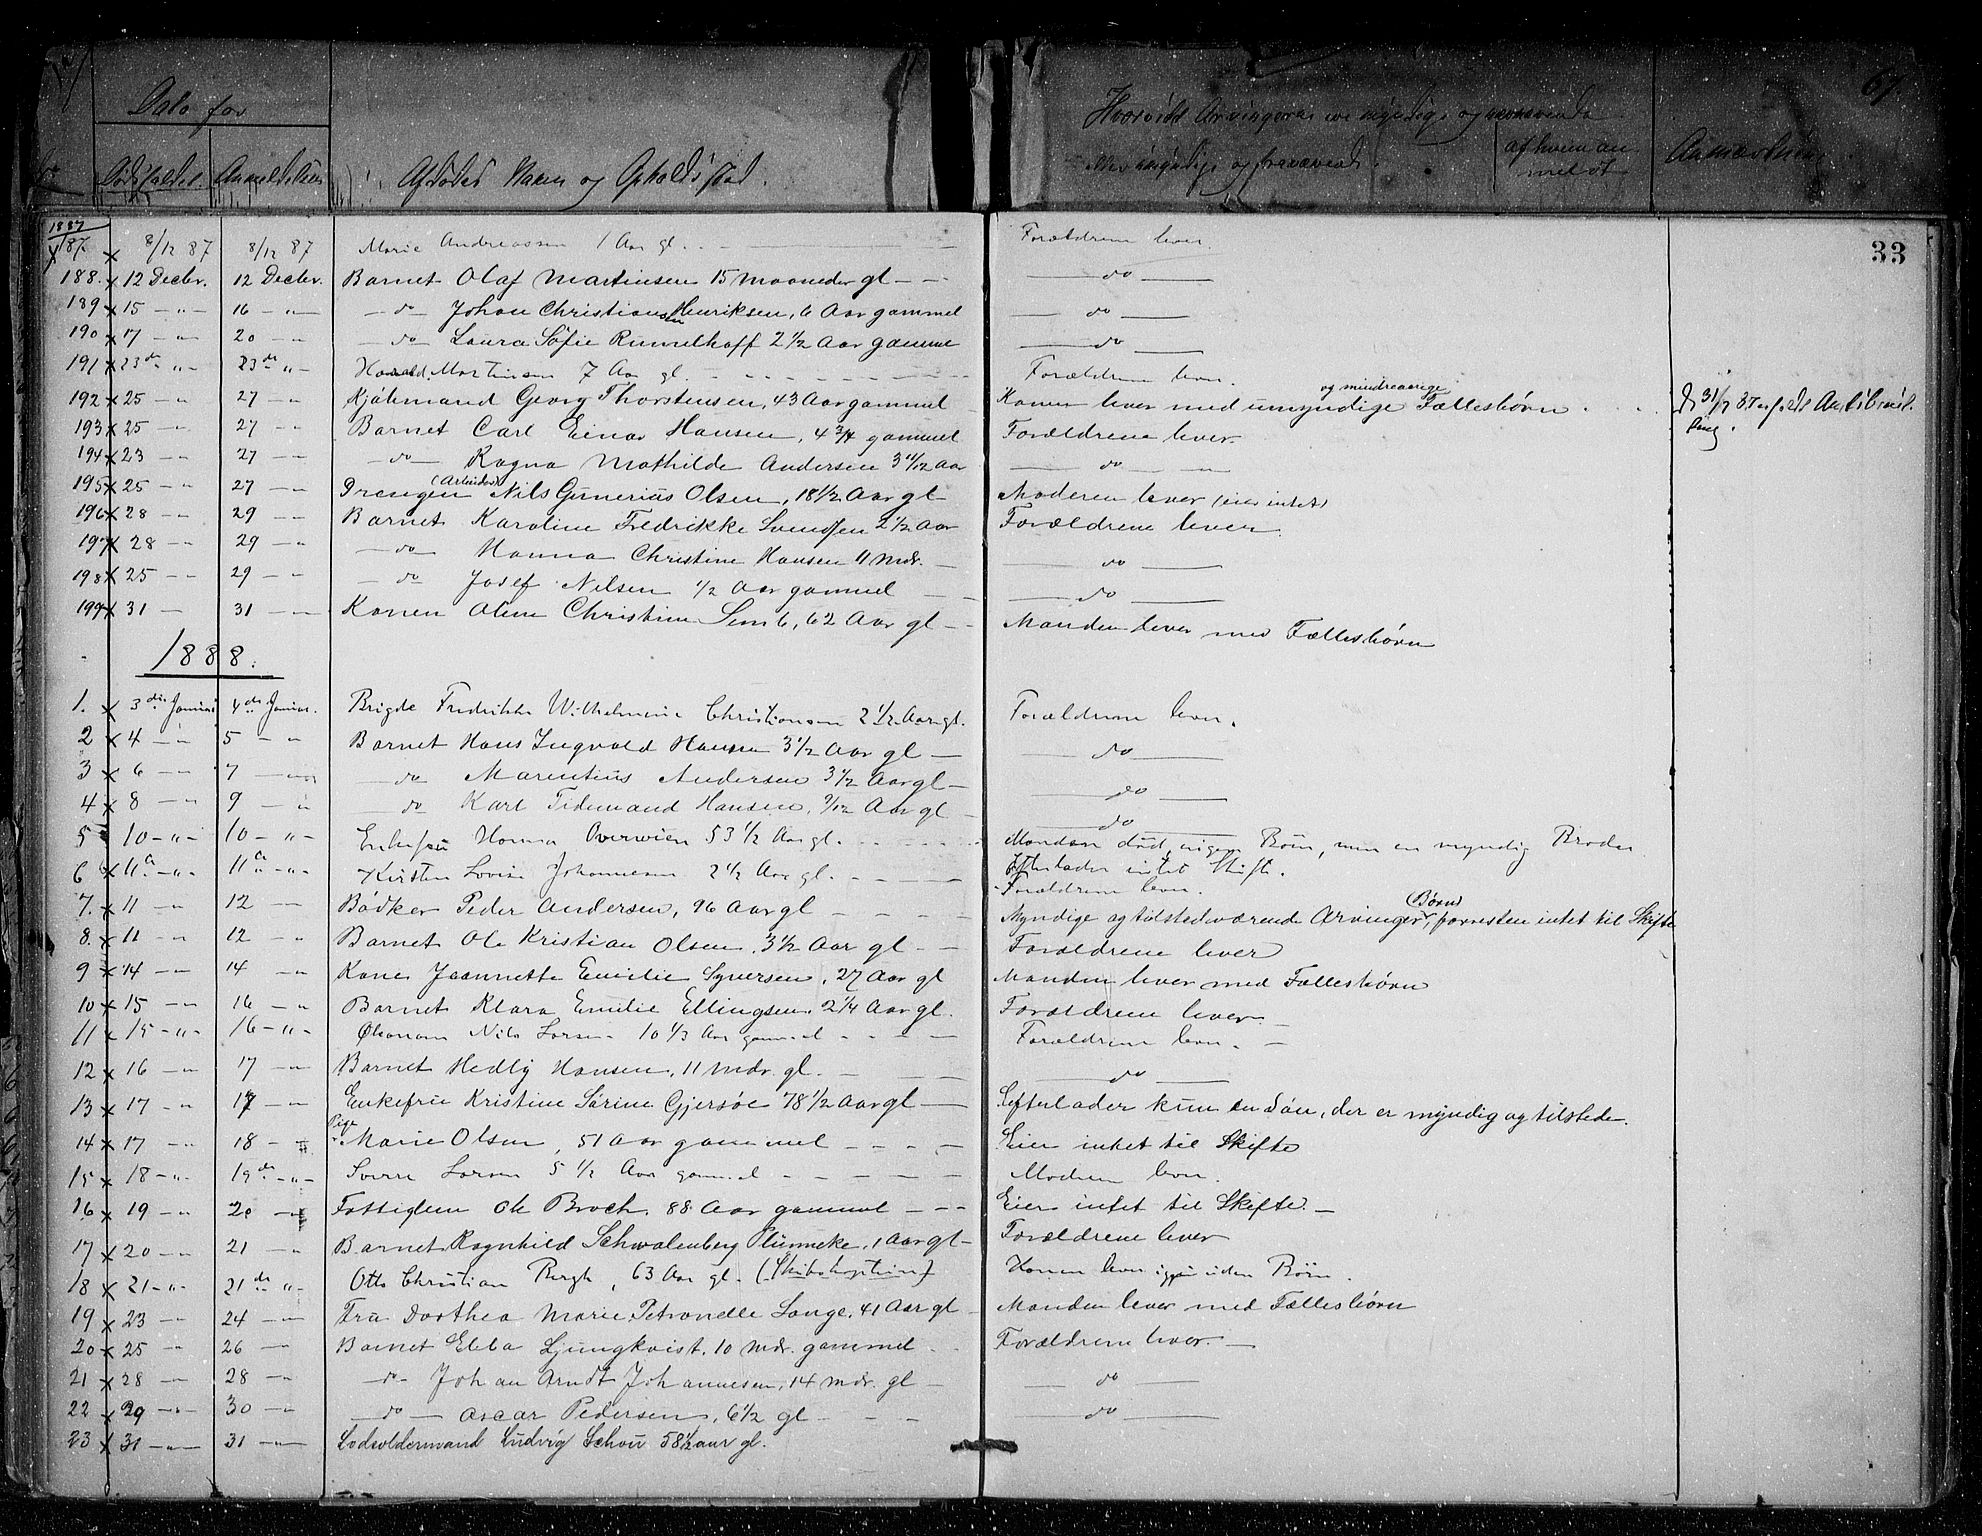 Dato for
Dødsfaldet. Anmeldelsen
Afdødes Navn og Opholdssted.
Hvorvidt Arvingerne ere myndige og nærværende
umyndige og fraværende.
af hvem an
meldt
Anmærkning
67
33
1887
187. x 8/12 87 8/12 87 Marie Andreassen 1 Aar gl. Forældrene lever.
188. x 12 Decbr. 12 Decbr. Barnet Olaf Martinsen 15 Maaneder gl — do —
189 x 15 — " — 16 — " — — do — Johan Christiansen Henriksen, 6 Aar gammel — do —
190 x 17 — " 20 — " — do — Laura Søfie Rummelhoff 2 1/2 Aar gammel — do —
191 x 23de " — 23de " — Harald Martinsen 7 Aar gl. Forældrene lever.
192 x 25 — " 27 — " Kjøbmand Georg Thorstensen, 43 Aar gammel Konen lever med umyndige og mindreaarige Fællesbørn
193 x 25 — " 27 — " Barnet Carl Einar Hansen, 4 3/4 gammel Forældrene lever
194 x 23 — " 27 — " — do — Ragna Mathilde Andersen 3 11/12 Aar — do —
195 x 25 — " 27 — " Drengen (Arbeider) Nils Gunerius Olsen, 18 1/2 Aar gl Moderen lever (eier intet)
196 x 28 — " 29 — " Barnet Karoline Fredrikke Svendsen 2 1/2 Aar Forældrene lever.
197 x 28 — " 29 — " — do — Hanna Christine Hansen 11 Mdr. — do —
198 x 25 — " 29 — " — do — Josef Nilsen 1/2 Aar gammel — do —
199 x 31 — 31 — " Konen Oline Christine Semb, 62 Aar gl — Manden lever med Fællesbørn
1888.
1. x 3die Januar 4de Januar. Fredrikke Wilhelmine Christiansen 2 1/2 Aar gl. Forældrene lever.
2 x 4 — " 5 — " Barnet Hans Ingvald Hansen 3 1/2 Aar gl — do —
3 x 6 — " 7 — " — do — Marentius Andersen 3 1/2 Aar gl — do —
4 x 8 — " 9 — " — do — Karl Tidemand Hansen, 9/12 Aar gl — do —
5 10 — " — 10 — " — Enkefru Hanna Overwien 53 1/2 Aar gl. Manden død, ingen Børn, men en myndig Broder
Efterlader intet Skifte.
6 x 11te — " — 11te — " — Kirsten Lovise Johannesen 2 1/2 Aar gl. Forældrene lever.
7. x 11 — " 12 — " Bødker Peder Andersen, 76 Aar gl Myndige og tilstedeværende Arvinger (Børn), forresten intet til Skifte
8. x 11 — " 12 — " Barnet Ole Kristian Olsen, 3 1/2 Aar gl Forældrene lever
9 x 14 — " 14 — " Kone Jeannette Emilie Syversen, 27 Aar gl Manden lever med Fællesbørn
10 x 15 — " 16 — " Barnet Klara Emilie Ellingsen 2 1/4 Aar gl. Forældrene lever
11 x 15 — " — 16 — " — Nils Larsen 10 1/3 Aar gammel Forældrene lever.
12 x 16 — " 17 — " Barnet Hedly Hansen, 11 Mdr. gl. — do —
13 x 17 — " 17 — " Enkefru Kristine Sørine Gjersøe 78 1/2 Aar gl Efterlader kun en Søn, der er myndig og tilstede.
14 x 17 — " 18 — " Pige Marie Olsen, 51 Aar gammel Eier intet til Skifte
15 x 18 — " 19de — " — Sverre Larsen 5 1/2 Aar gammel Modren lever.
16 x 19 — " 20 — " Fattiglem Ole Broch, 88 Aar gammel Eier intet til Skifte.
17 x 20 — " 21 — " Barnet Ragnhild Schwalenberg Plünneke, 1 Aar gl Forældrene lever
18 x 21 — " — 21de " — Otto Christian Bergh, 63 Aar gl. (Skibskaptein) Konen lever igjen uden Børn.
19 x 23 — " 24 — " Fru Dorthea Marie Petronelle Lange, 41 Aar gl Manden lever med Fællesbørn
20 x 25 — " 26 — " Barnet Ebba Ljungkvist, 10 Mdr. gammel Forældrene lever.
21 x 28 — " 28 — " — do — Johan Arndt Johannesen, 14 mdr. gl — do —
22 x 29 — " 30 — " — do — Oscar Pedersen, 6 1/2 gl — do —
23 x 31 — " 31 — " Lodsoldermand Ludvig Schou 58 1/2 aar gl.